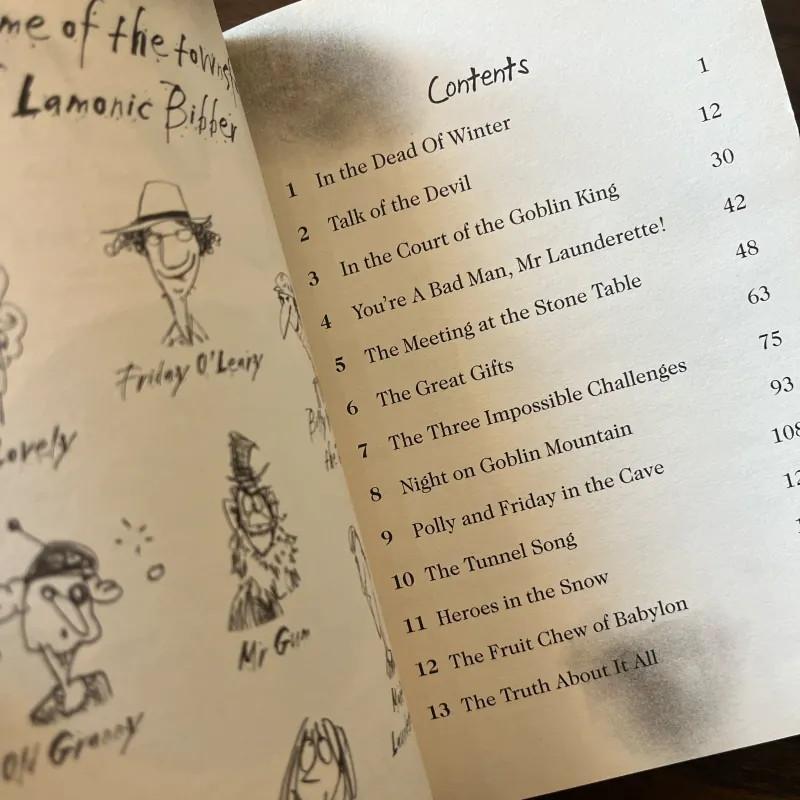 me of the towns
Lamonic Bibber
Friday O'Leary
Lovely
Mr Gum
Old Granny
Contents
1 In the Dead Of Winter 1
2 Talk of the Devil 12
3 In the Court of the Goblin King 30
4 You're A Bad Man, Mr Launderette! 42
5 The Meeting at the Stone Table 48
6 The Great Gifts 63
7 The Three Impossible Challenges 75
8 Night on Goblin Mountain 93
9 Polly and Friday in the Cave 108
10 The Tunnel Song
11 Heroes in the Snow
12 The Fruit Chew of Babylon
13 The Truth About It All